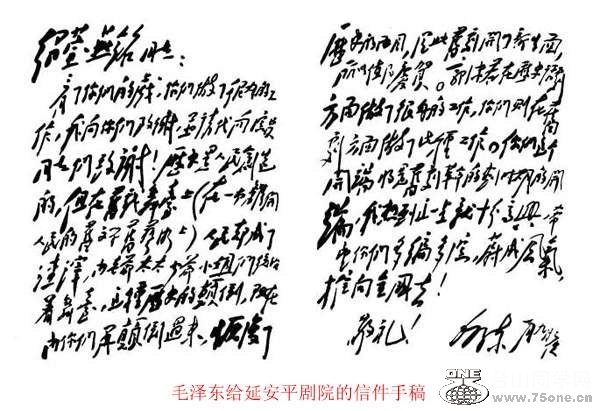 绍萱、燕铭同志：
看了你们的戏，你们做了很好的工
作，我向你们致谢，并请代向演员
同志们致谢！歷史是人民創造
的，但在舊戏舞臺上（在一切離開
人民的舊文学舊艺術上）人民却成了
渣滓，由老爷太太少爷小姐们统治
着舞臺，这種歷史的颠倒，现在
由你们再颠倒過来，恢復了
歷史的面目，從此舊劇開了新生面，
所以值得慶賀。郭沫若在歷史話劇
方面做了很好的工作，你们则在舊
劇方面做了此種工作。你们这个
開端将是舊劇革命的划时期的開
端，我想到这一点就十分高興，希
望你们多编多演，蔚成風氣，
推向全國去！
敬礼！ 毛泽东
毛泽东给延安平剧院的信件手稿
ONE
台山同学网
www.75one.cn